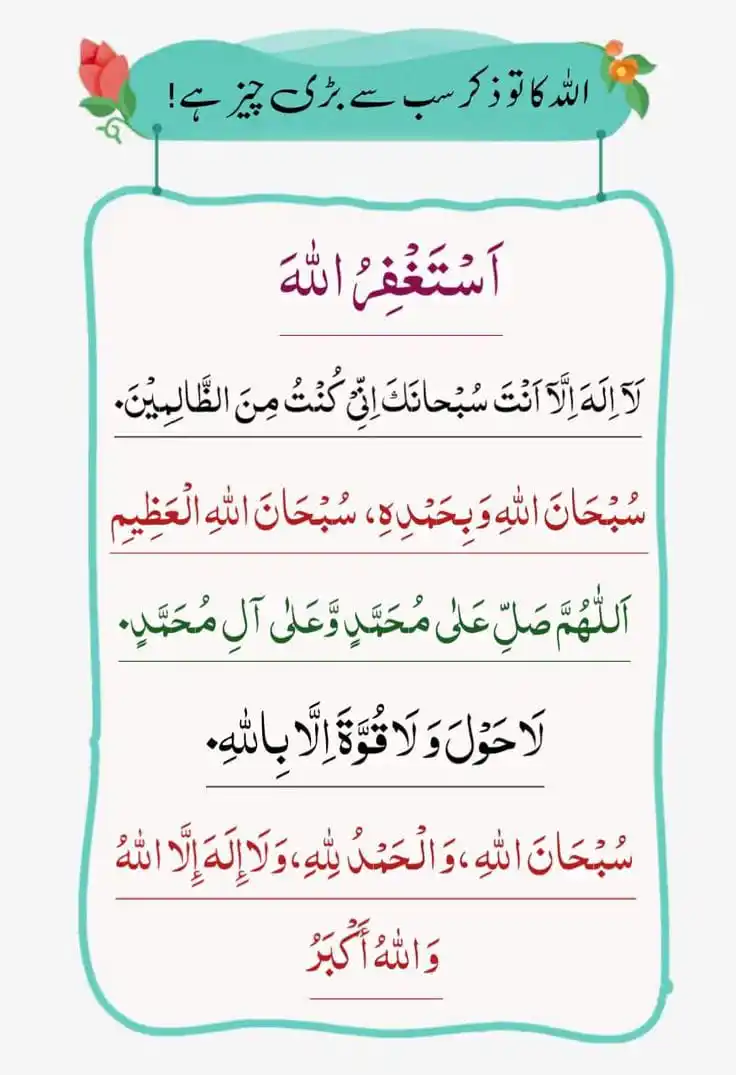 اللہ کا تو ذکر سب سے بڑی چیز ہے!
اَسْتَغْفِرُ اللّٰهَ
لَآ اِلَهَ اِلَّآ اَنْتَ سُبْحانَكَ اِنِّىْ كُنْتُ مِنَ الظَّالِمِيْنَ۰
سُبْحَانَ اللّٰهِ وَبِحَمْدِهِ، سُبْحَانَ اللّٰهِ الْعَظِيمِ
اَللّٰهُمَّ صَلِّ عَلٰى مُحَمَّدٍ وَّعَلٰى آلِ مُحَمَّدٍ۰
لَا حَوْلَ وَلَا قُوَّةَ اِلَّا بِاللّٰهِ۰
سُبْحَانَ اللّٰهِ، وَالْحَمْدُ لِلّٰهِ، وَلَا إِلَهَ إِلَّا اللّٰهُ
وَاللّٰهُ أَكْبَرُ